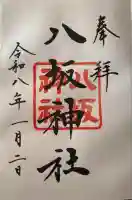 奉拝
八坂神社
八坂神社
令和八年一月二日